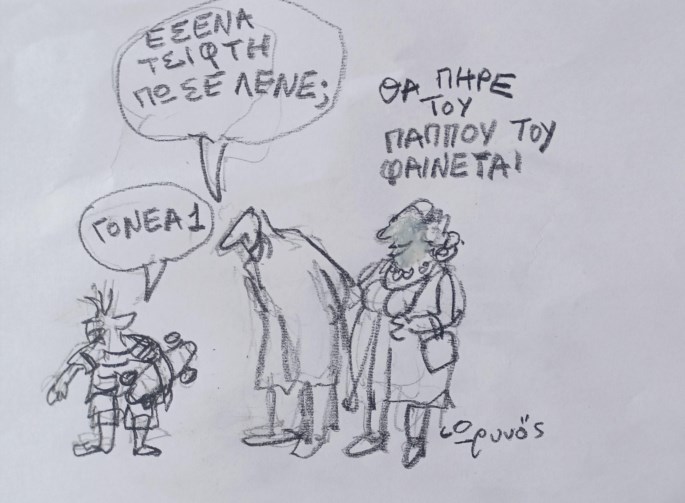 ΕΣΕΝΑ
ΤΣΙΦΤΗ
ΠΩ ΣΕ ΛΕΝΕ;
ΓΟΝΕΑ 1
ΘΑ ΠΗΡΕ
ΤΟΥ
ΠΑΠΠΟΥ ΤΟΥ
ΦΑΙΝΕΤΑΙ